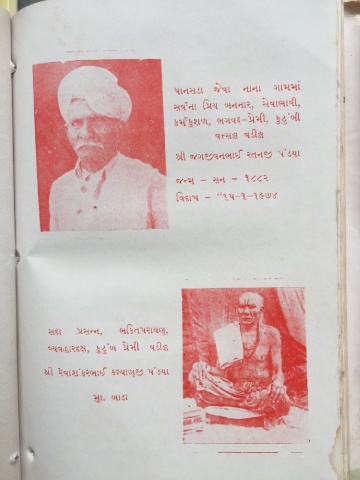 પાનસડા જેવા નાના ગામમાં
સર્વના પ્રિય બનનાર, સેવાભાવી,
કર્મકુશળ, ભગવદ્-પ્રેમી, કુટુંબી
વત્સલ વડીલ
શ્રી જગજીવનભાઈ રતનજી પંડયા
જન્મ - સન - ૧૮૮૨
વિદાય - "૧૫-૧-૧૯૭૪
સદા પ્રસન્ન, ભક્તિપરાયણ,
વ્યવહારદક્ષ, કુટુંબ પ્રેમી વડીલ
શ્રી દેવાશંકરભાઈ કલ્યાણજી પંડયા
મુ. ખાડા